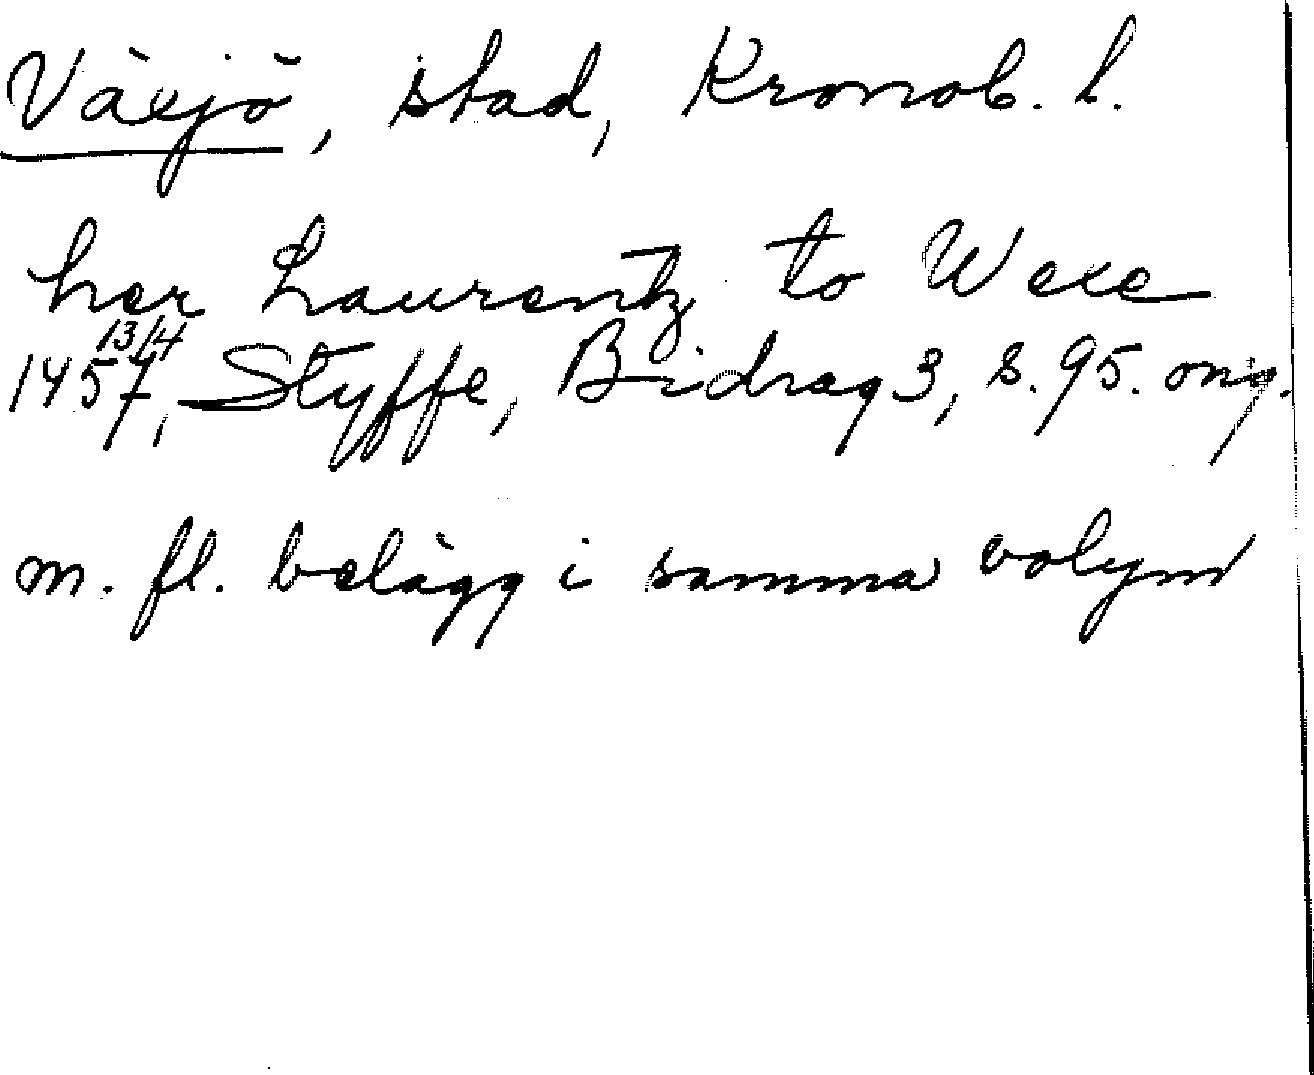 Växjö, stad, Kronob. l.
her Laurentz to Wexe
1457 13/4, Styffe, Bidrag 3, s. 95. orig.
m. fl. belägg i samma volym